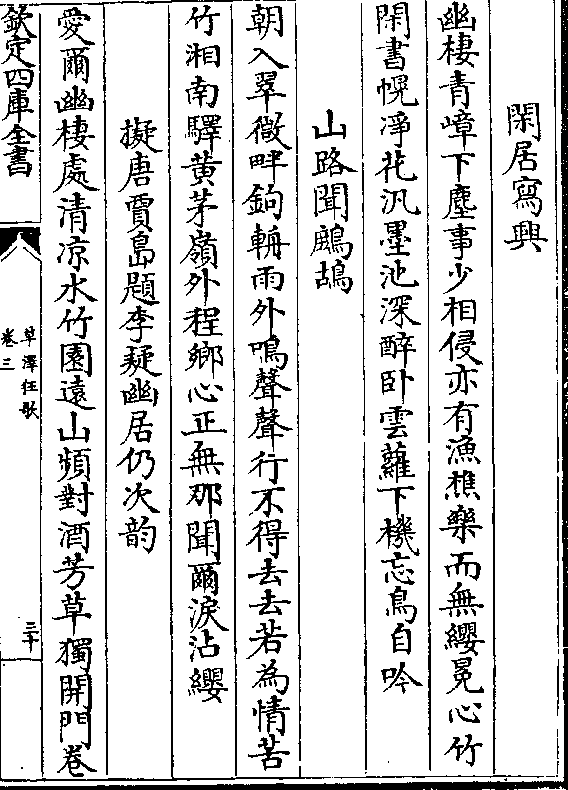 閑居寫興
幽棲青嶂下塵事少相侵亦有漁樵樂而無纓冕心竹
閑書幌淨花汎墨池深醉卧雲蘿下機忘鳥自吟
山路聞鷓鴣
朝入翠㣲畔鉤輈雨外鳴聲聲行不得去去若為情苦
竹湘南驛黄茅嶺外程鄉心正無那聞爾淚沾纓
擬唐賈島題李疑幽居仍次韵
愛爾幽棲處清凉水竹園遠山頻對酒芳草獨開門卷
欽定四庫全書
草澤狂歌
卷三
二十